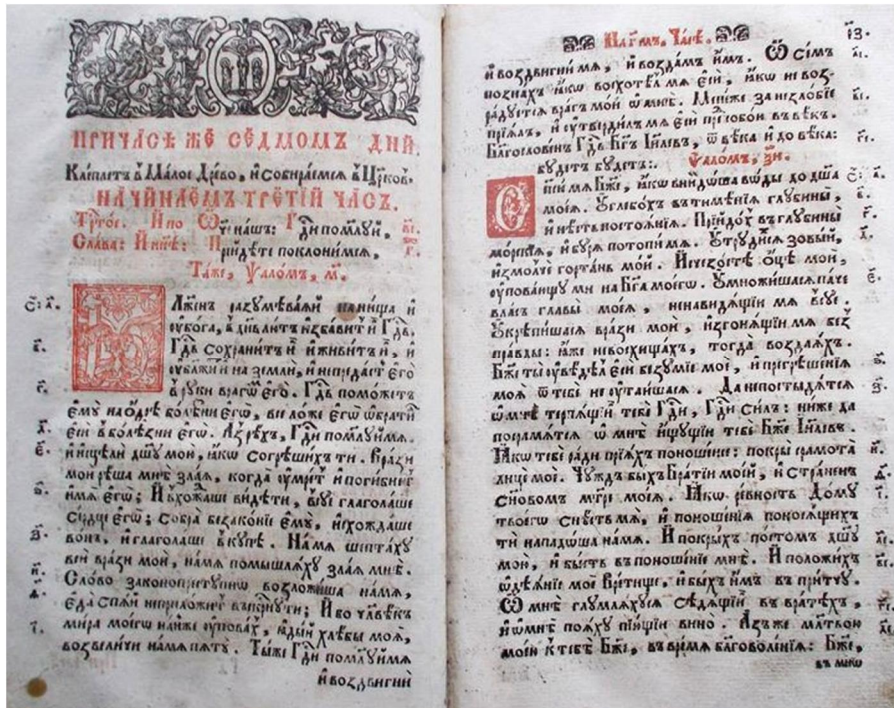 ПРИЧАСѢ ЖЕ СЕДМОМЪ ДНИ.
Клеплет в Малое Древо, и собираемся в Црков.
НАЧИНАЕМЪ ТРЕТІЙ ЧАС.
Трⷭ҇тое. И по Ѿч҃е нашъ: Гдⷭ҇и помл҃уи, в҃і
Слава: И нн҃ѣ: Прїидѣте поклонимся, г҃.
Таже, Ѱалом, м҃.
Блажен разумѣваяй на нища и
оубога, в день лют избавит и Гдⷭ҇ь,
Гдⷭ҇ь сохранит и и живит и, и
оублажи и на земли, и непредаст его
в руки врагѡⷡ его. Гдⷭ҇ь поможетъ
ему на ѻдрѣ болѣзни егѡ, все ложе егѡ ѡбрати
еси в болѣзни егѡ. Аз рѣхъ, Гдⷭ҇и помл҃уи мя.
и исцели дш҃у мою, яко согрѣших ти. Врази
мои рѣша мнѣ злая, когда оумрет и погибнет
имя егѡ; И вхождаше видѣти, всуе глаголаше
сердце егѡ; собра безаконїе ему, исхождаше
вон, и глаголаше вкупѣ. На мя шептаху
вси врази мои, на мя помышляху злая мнѣ.
Слово законопреступно возложиша на мя,
еда спяй неприложит въскрⷭ҇нути; И бо чл҃вѣк
мира моегѡ на нже оуповах, ядый хлѣбы моя,
возвеличи на мя пяту. Ты же Гдⷭ҇и помл҃уи мя
и воздвигни
На г҃м. Часѣ. г҃і.
и воздвигни мя, и воздам им. Ѡ сем
познах яко восхотѣл мя еси, яко не воз-
радуется враг мой ѡ мнѣ. Мене же за незлобїе
прїял, и оутвердил мя еси пред собою в вѣк.
Благословен Гдⷭ҇ь Бг҃ъ Ійлев, ѿ вѣка и до вѣка:
будет будет:. Ѱалом, ѯ҃и.
Спаси мя Бж҃е, яко внидѡша вѡды до дш҃а
моея. Углебох в тимѣнїя глубины,
и нѣсть постоянїя. Прїидох в глубины
морския, и буря потопи мя. Утрудихся зовый,
измолче гортань мой. Исчезостѣ очи мои,
оуповающу ми на Бг҃а моегѡ. Умножишася паче
влас главы моея, ненавидящїи мя всуе.
Укрепишася врази мои, изгонящїи мя без
правды: яже невосхищах, тогда воздаях.
Бж҃е ты оувѣдѣл еси безумїе мое, и прегрѣшения
моя ѿ тебе не оутаишася. Да непостыдятся
ѡ мнѣ терпящїи тебе Гдⷭ҇и, Гдⷭ҇и сил: ниже да
посрамятся ѡ мнѣ ищущїи тебе Бж҃е Ійлев.
Яко тебе ради прїях поношение: покры срамота
лице мое. Чуждь бых братїи моей, и странен
сн҃овом мт҃ре моея. Яко ревность Дому
твоего снѣсть мя, и поношенїя поносящих
ти нападоша на мя. И покрых постом дш҃у
мою, и бысть в поношенїе мнѣ. И положих
ѡдѣянїе мое вретище, и бых им в притчу.
Ѡ мнѣ глумляхуся сѣдящїи в вратѣх,
и ѡ мнѣ пояху пїющїи вино. Аз же мл҃твою
моею к тебѣ Бж҃е, в время благоволенїя: Бж҃е,
въ мно